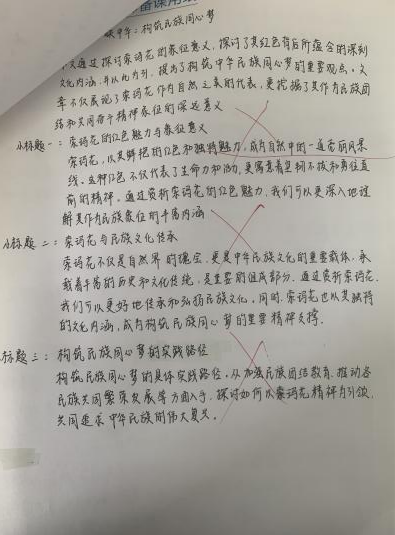 备课用纸
映中华：构筑民族同心梦
本文通过探讨索玛花的象征意义，探讨了其红色背后所蕴含的深刻
文化内涵，并以此为引，提出了构筑中华民族同心梦的重要观点。文
章不仅展现了索玛花作为自然之美的代表，更挖掘了其作为民族团
结和共同奋斗精神象征的深远意义
小标题一：索玛花的红色魅力与象征意义
索玛花，以其鲜艳的红色和独特魅力，成为自然中的一道亮丽风景
线。这种红色不仅代表了生命力和活力，更寓意着坚韧不拔和勇往直
前的精神。通过赏析索玛花的红色魅力，我们可以更深入地理
解其作为民族象征的丰富内涵
小标题二：索玛花与民族文化传承
索玛花不仅是自然界的瑰宝，更是中华民族文化的重要载体，承
载着丰富的历史和文化传统，是重要的组成部分。通过赏析索玛花，
我们可以更好地传承和弘扬民族文化，同时，索玛花也以其独特
的文化内涵，成为构筑民族同心梦的重要精神支撑。
标题三：构筑民族同心梦的实践路径
构筑民族同心梦的具体实践路径。从加强民族团结教育、推动各
民族共同繁荣发展等方面入手，探讨如何以索玛花精神为引领，
共同追求中华民族的伟大复兴。